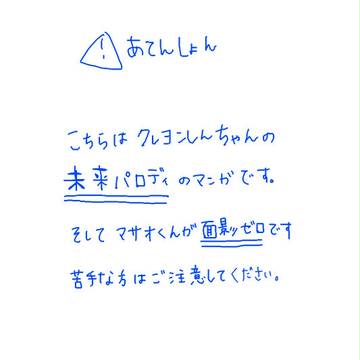 ⚠ あてんしょん
こちらは クレヨンしんちゃんの
未来パロディ のマンガです。
そして マサオくんが 面影ゼロです
苦手な方はご注意してください。